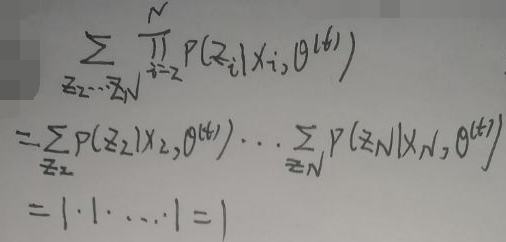 ∑_{Z₂…Z_N} ∏_{i=2}^{N} P(Z_i|X_i,θ^{(t)})
=∑_{Z₂} P(Z₂|X₂,θ^{(t)})⋯∑_{Z_N} P(Z_N|X_N,θ^{(t)})
=1·1·…·1=1